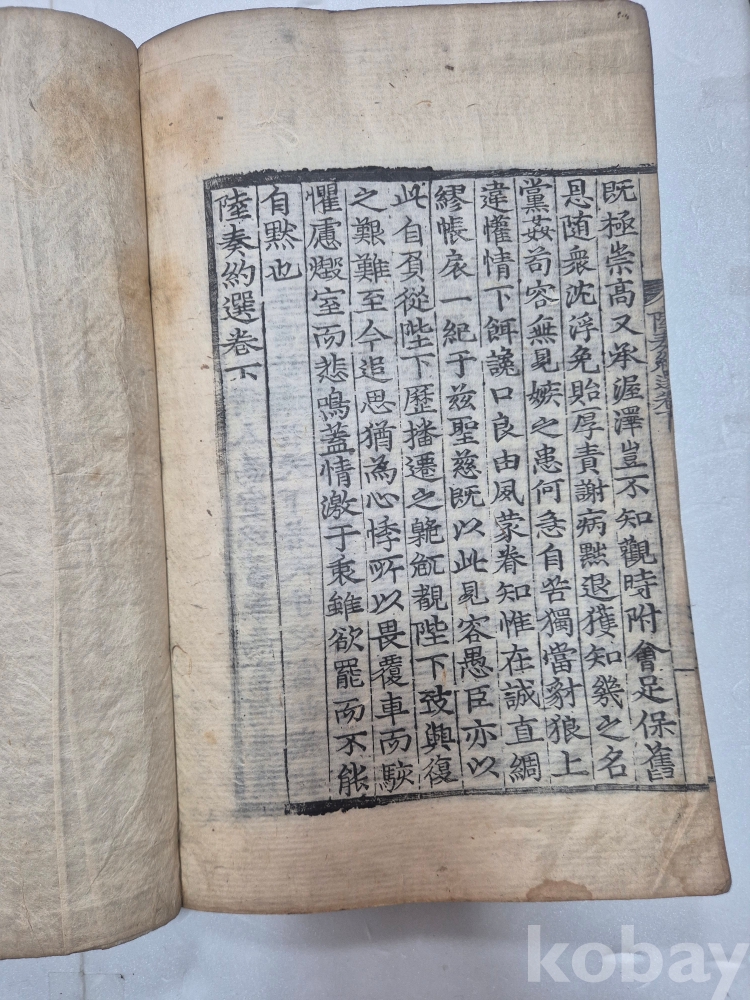 既極崇高又承渥澤豈不知觀時附會足保舊
恩随衆沈浮免貽厚責謝病黙退獲知幾之名
黨姦苟容無見嫉之患何急自苦獨當豺狼上
違懽情下餌讒口良由夙蒙眷知惟在誠直綢
繆帳扆一紀于玆聖慈既以此見容愚臣亦以
此自負從陛下歷播遷之艱危覩陛下致興復
之艱難至今追思猶爲心悸所以畏覆車而駭
懼慮燬室而悲鳴蓋情激于衷雖欲罷而不能
自黙也
陸奏約選卷下
kobay